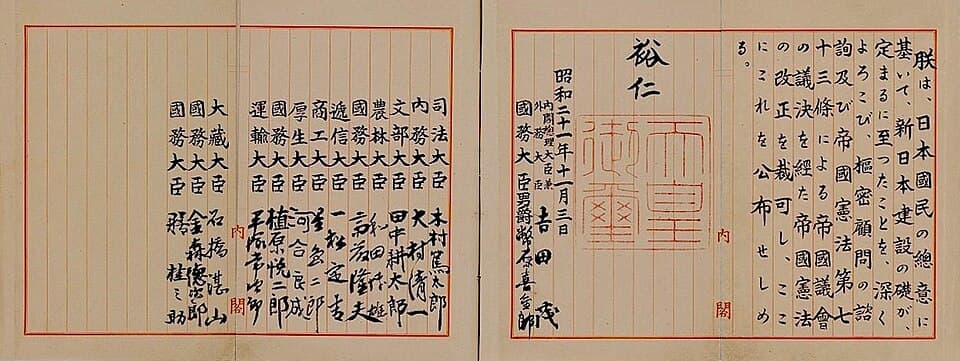 朕は、日本國民の總意に
基いて、新日本建設の礎が、
定まるに至つたことを、深く
よろこび、樞密顧問の諮
詢及び帝國憲法第七
十三條による帝國議會
の議決を經た帝國憲法
の改正を裁可し、ここ
にこれを公布せしめ
る。
内閣
裕仁
天皇
御璽
昭和二十一年十一月三日
内閣總理大臣兼
外務大臣 吉田茂
國務大臣 男爵幣原喜重郎
司法大臣 木村篤太郎
内務大臣 大村清一
文部大臣 田中耕太郎
農林大臣 和田博雄
國務大臣 斎藤隆夫
遞信大臣 一松定吉
商工大臣 星島二郎
厚生大臣 河合良成
國務大臣 植原悦二郎
運輸大臣 平塚常次郎
内閣
大藏大臣 石橋湛山
國務大臣 金森徳次郎
國務大臣 膳桂之助